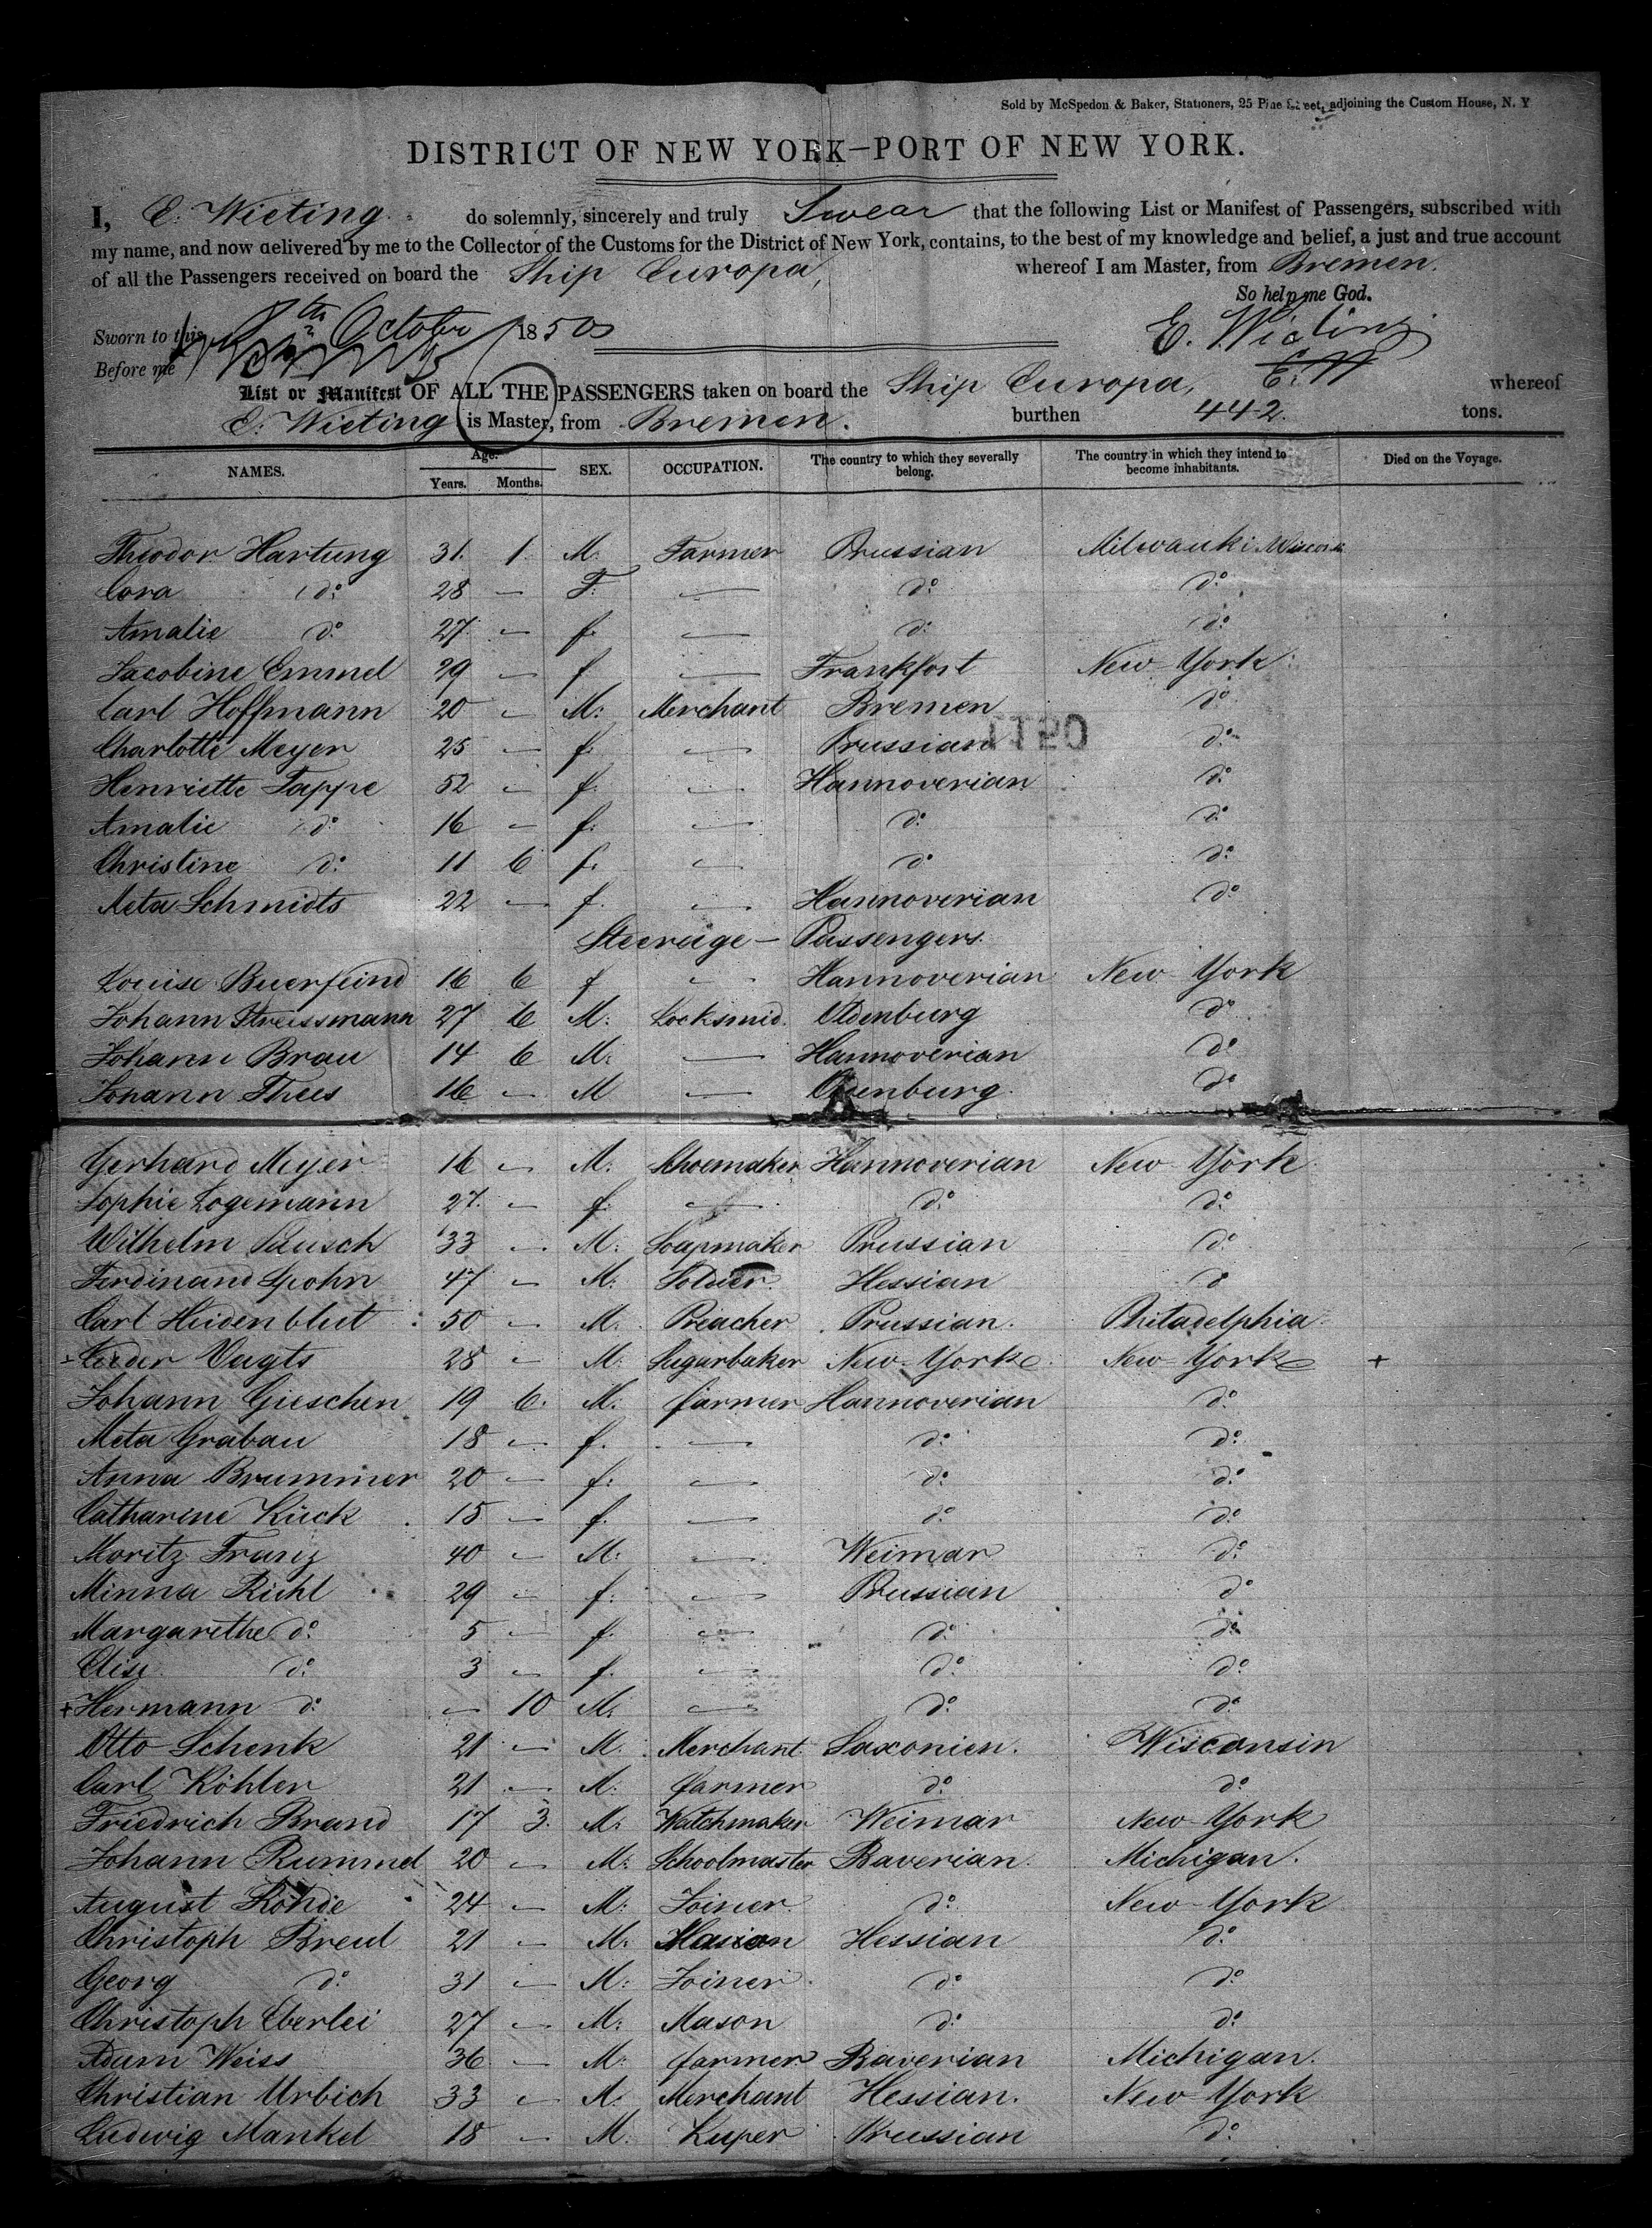 Sold by McSpedon & Baker, Stationers, 25 Pine Street, adjoining the Custom House, N. Y
DISTRICT OF NEW YORK—PORT OF NEW YORK.
I, E. Wieting do solemnly, sincerely and truly Swear that the following List or Manifest of Passengers, subscribed with
my name, and now delivered by me to the Collector of the Customs for the District of New York, contains, to the best of my knowledge and belief, a just and true account
of all the Passengers received on board the Ship Europa, whereof I am Master, from Bremen.
So help me God.
Sworn to this 8th October 1850 E. Wieting
Before me
List or Manifest OF ALL THE PASSENGERS taken on board the Ship Europa, E. W whereof
E. Wieting is Master, from Bremen. burthen 442 tons.
NAMES. Age. Years. Months. SEX. OCCUPATION. The country to which they severally belong. The country in which they intend to become inhabitants. Died on the Voyage.
Theodor Hartung 31. 1. M. Farmer Prussian Milwauki Wisconsin
Cora do. 28 — F. — do. do.
Amalie do. 27 — f. — do. do.
Jacobine Emmel 29 — f — Frankfort New York
Carl Hoffmann 20 — M. Merchant Bremen do.
Charlotte Meyer 25 — f. — Prussian do.
Henriette Tappe 52 — f. — Hannoverian do.
Amalie do. 16 — f. — do. do.
Christine do. 11 6 f. — do. do.
Meta Schmidts 22 — f. — Hannoverian do.
Steerage — Passengers.
Louise Buerfeind 16 6 f — Hannoverian New York
Johann Streissmann 27 6 M. Locksmid. Oldenburg do.
Johann Brau 14 6 M. — Hannoverian do.
Johann Thees 16 — M — Oldenburg. do.
Gerhard Meyer 16 — M. Shoemaker Hannoverian New York
Sophie Logemann 27. — f. — do. do.
Wilhelm 33 — M. Soapmaker Prussian do.
Ferdinand Spohn 47 — M. Soldier. Hessian do
Carl Heidenblut 50 — M. Preacher Prussian. Philadelphia
Lüder Vagts 28 — M. Sugarbaker New York New York +
Johann Gieschen 19 6. M. farmer Hannoverian do.
Meta Grabau 18 — f. — do. do.
Anna Brummer 20 — f. — do. do.
Catharine Kück 15 — f. — do. do.
Moritz Franz 40 — M. — Weimar do.
Minna Riehl 29 — f. — Prussian do
Margarethe do. 5 — f. — do. do.
Elise do. 3 — f. — do. do.
+ Hermann do. — 10 M. — do. do.
Otto Schenk 21 — M. Merchant Saxonien. Wisconsin
Carl Köhler 21 — M. farmer do. do.
Friedrich Brand 17 3. M. Watchmaker Weimar New York
Johann Rummel 20 — M. Schoolmaster Baverian. Michigan.
August Rohde 24 — M. Joiner do. New York
Christoph Breul 21 — M. Mason Hessian do.
Georg do. 31 — M. Joiner do. do.
Christoph Eberlei 27 — M. Mason do. do.
Adam Weiss 36 — M. farmer Baverian Michigan.
Christian Urbich 33 — M. Merchant Hessian. New York
Ludwig Mankel 18 — M. Kuper Prussian do.